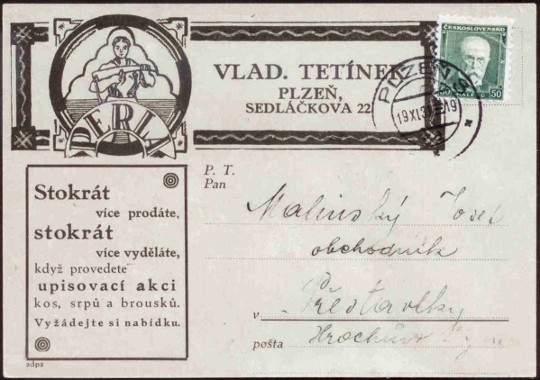 VLAD. TETÍNEK
PLZEŇ,
SEDLÁČKOVA 22
PERLA
ČESKOSLOVENSKO
50 HALÉŘŮ 50
PLZEŇ
19.XI.
Stokrát
více prodáte,
stokrát
více vyděláte,
když provedete
upisovací akci
kos, srpů a brousků.
Vyžádejte si nabídku.
adpa
P. T.
Pan
Malinský Josef
obchodník
v Předtavlky
pošta Hrochův